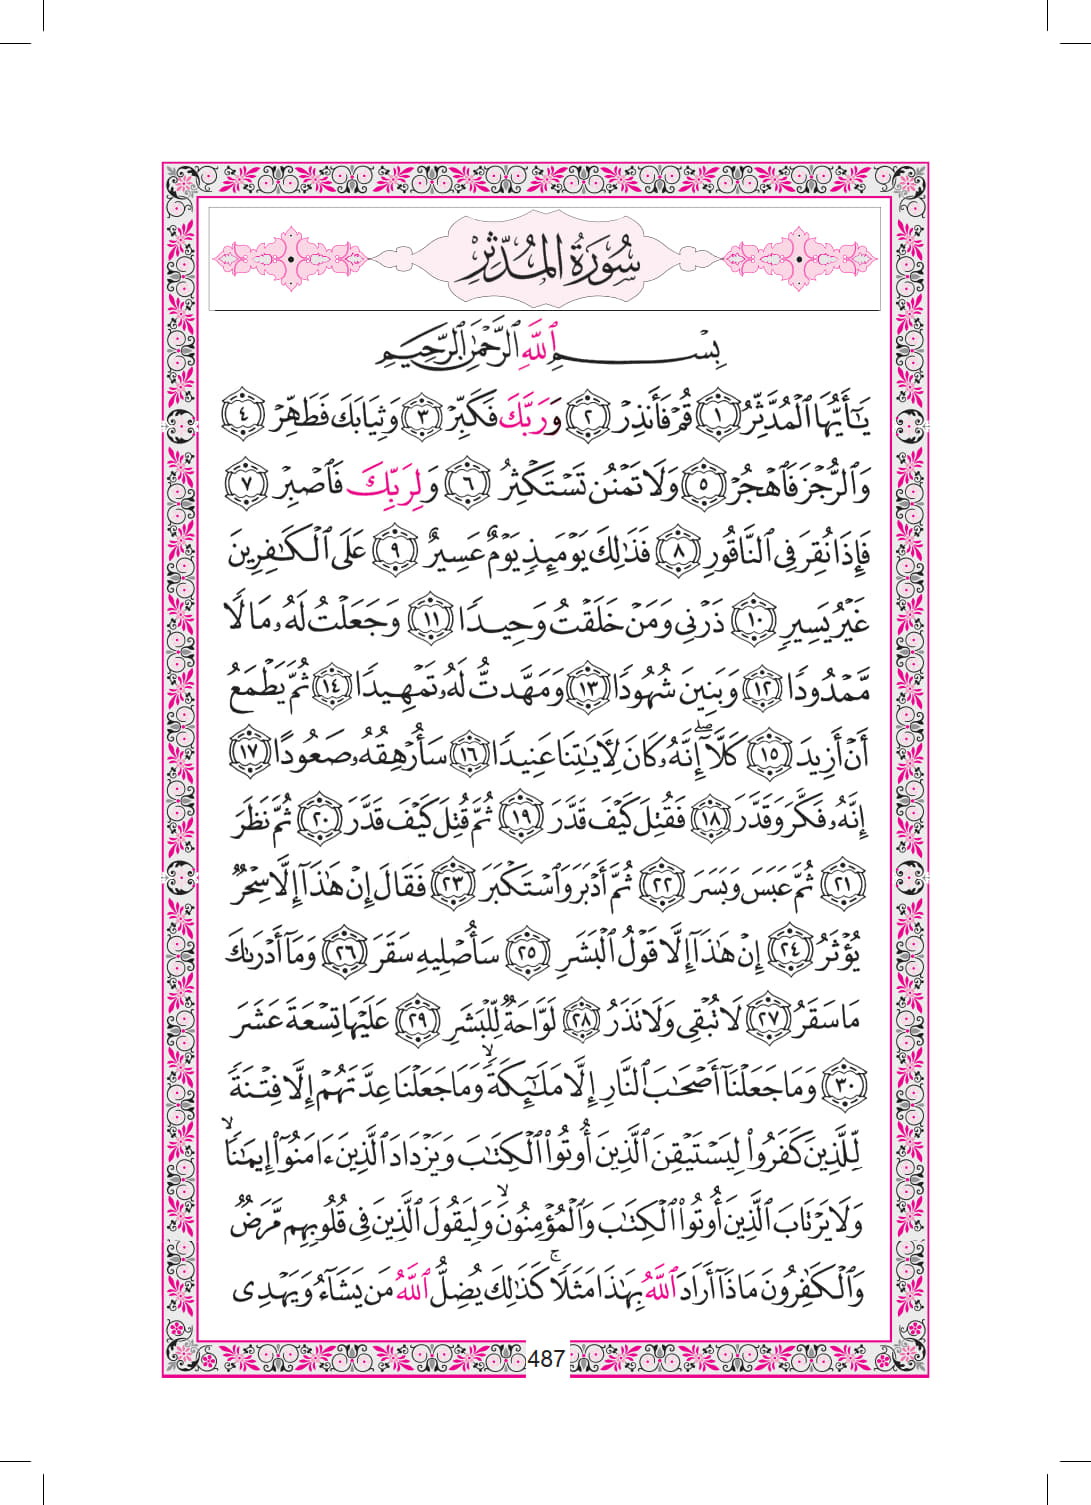 سُورَةُ المُدَّثِّر
بِسْمِ ٱللَّهِ ٱلرَّحْمَٰنِ ٱلرَّحِيمِ
يَٰٓأَيُّهَا ٱلْمُدَّثِّرُ ﴿١﴾ قُمْ فَأَنذِرْ ﴿٢﴾ وَرَبَّكَ فَكَبِّرْ ﴿٣﴾ وَثِيَابَكَ فَطَهِّرْ ﴿٤﴾
وَٱلرُّجْزَ فَٱهْجُرْ ﴿٥﴾ وَلَا تَمْنُن تَسْتَكْثِرُ ﴿٦﴾ وَلِرَبِّكَ فَٱصْبِرْ ﴿٧﴾
فَإِذَا نُقِرَ فِى ٱلنَّاقُورِ ﴿٨﴾ فَذَٰلِكَ يَوْمَئِذٍ يَوْمٌ عَسِيرٌ ﴿٩﴾ عَلَى ٱلْكَٰفِرِينَ
غَيْرُ يَسِيرٍ ﴿١٠﴾ ذَرْنِى وَمَنْ خَلَقْتُ وَحِيدًا ﴿١١﴾ وَجَعَلْتُ لَهُۥ مَالًا
مَّمْدُودًا ﴿١٢﴾ وَبَنِينَ شُهُودًا ﴿١٣﴾ وَمَهَّدتُّ لَهُۥ تَمْهِيدًا ﴿١٤﴾ ثُمَّ يَطْمَعُ
أَنْ أَزِيدَ ﴿١٥﴾ كَلَّآ ۖ إِنَّهُۥ كَانَ لِءَايَٰتِنَا عَنِيدًا ﴿١٦﴾ سَأُرْهِقُهُۥ صَعُودًا ﴿١٧﴾
إِنَّهُۥ فَكَّرَ وَقَدَّرَ ﴿١٨﴾ فَقُتِلَ كَيْفَ قَدَّرَ ﴿١٩﴾ ثُمَّ قُتِلَ كَيْفَ قَدَّرَ ﴿٢٠﴾ ثُمَّ نَظَرَ
﴿٢١﴾ ثُمَّ عَبَسَ وَبَسَرَ ﴿٢٢﴾ ثُمَّ أَدْبَرَ وَٱسْتَكْبَرَ ﴿٢٣﴾ فَقَالَ إِنْ هَٰذَآ إِلَّا سِحْرٌ
يُؤْثَرُ ﴿٢٤﴾ إِنْ هَٰذَآ إِلَّا قَوْلُ ٱلْبَشَرِ ﴿٢٥﴾ سَأُصْلِيهِ سَقَرَ ﴿٢٦﴾ وَمَآ أَدْرَىٰكَ
مَا سَقَرُ ﴿٢٧﴾ لَا تُبْقِى وَلَا تَذَرُ ﴿٢٨﴾ لَوَّاحَةٌ لِّلْبَشَرِ ﴿٢٩﴾ عَلَيْهَا تِسْعَةَ عَشَرَ
﴿٣٠﴾ وَمَا جَعَلْنَآ أَصْحَٰبَ ٱلنَّارِ إِلَّا مَلَٰٓئِكَةً ۙ وَمَا جَعَلْنَا عِدَّتَهُمْ إِلَّا فِتْنَةً
لِّلَّذِينَ كَفَرُوا۟ لِيَسْتَيْقِنَ ٱلَّذِينَ أُوتُوا۟ ٱلْكِتَٰبَ وَيَزْدَادَ ٱلَّذِينَ ءَامَنُوٓا۟ إِيمَٰنًا ۙ
وَلَا يَرْتَابَ ٱلَّذِينَ أُوتُوا۟ ٱلْكِتَٰبَ وَٱلْمُؤْمِنُونَ ۙ وَلِيَقُولَ ٱلَّذِينَ فِى قُلُوبِهِم مَّرَضٌ
وَٱلْكَٰفِرُونَ مَاذَآ أَرَادَ ٱللَّهُ بِهَٰذَا مَثَلًا ۚ كَذَٰلِكَ يُضِلُّ ٱللَّهُ مَن يَشَآءُ وَيَهْدِى
487